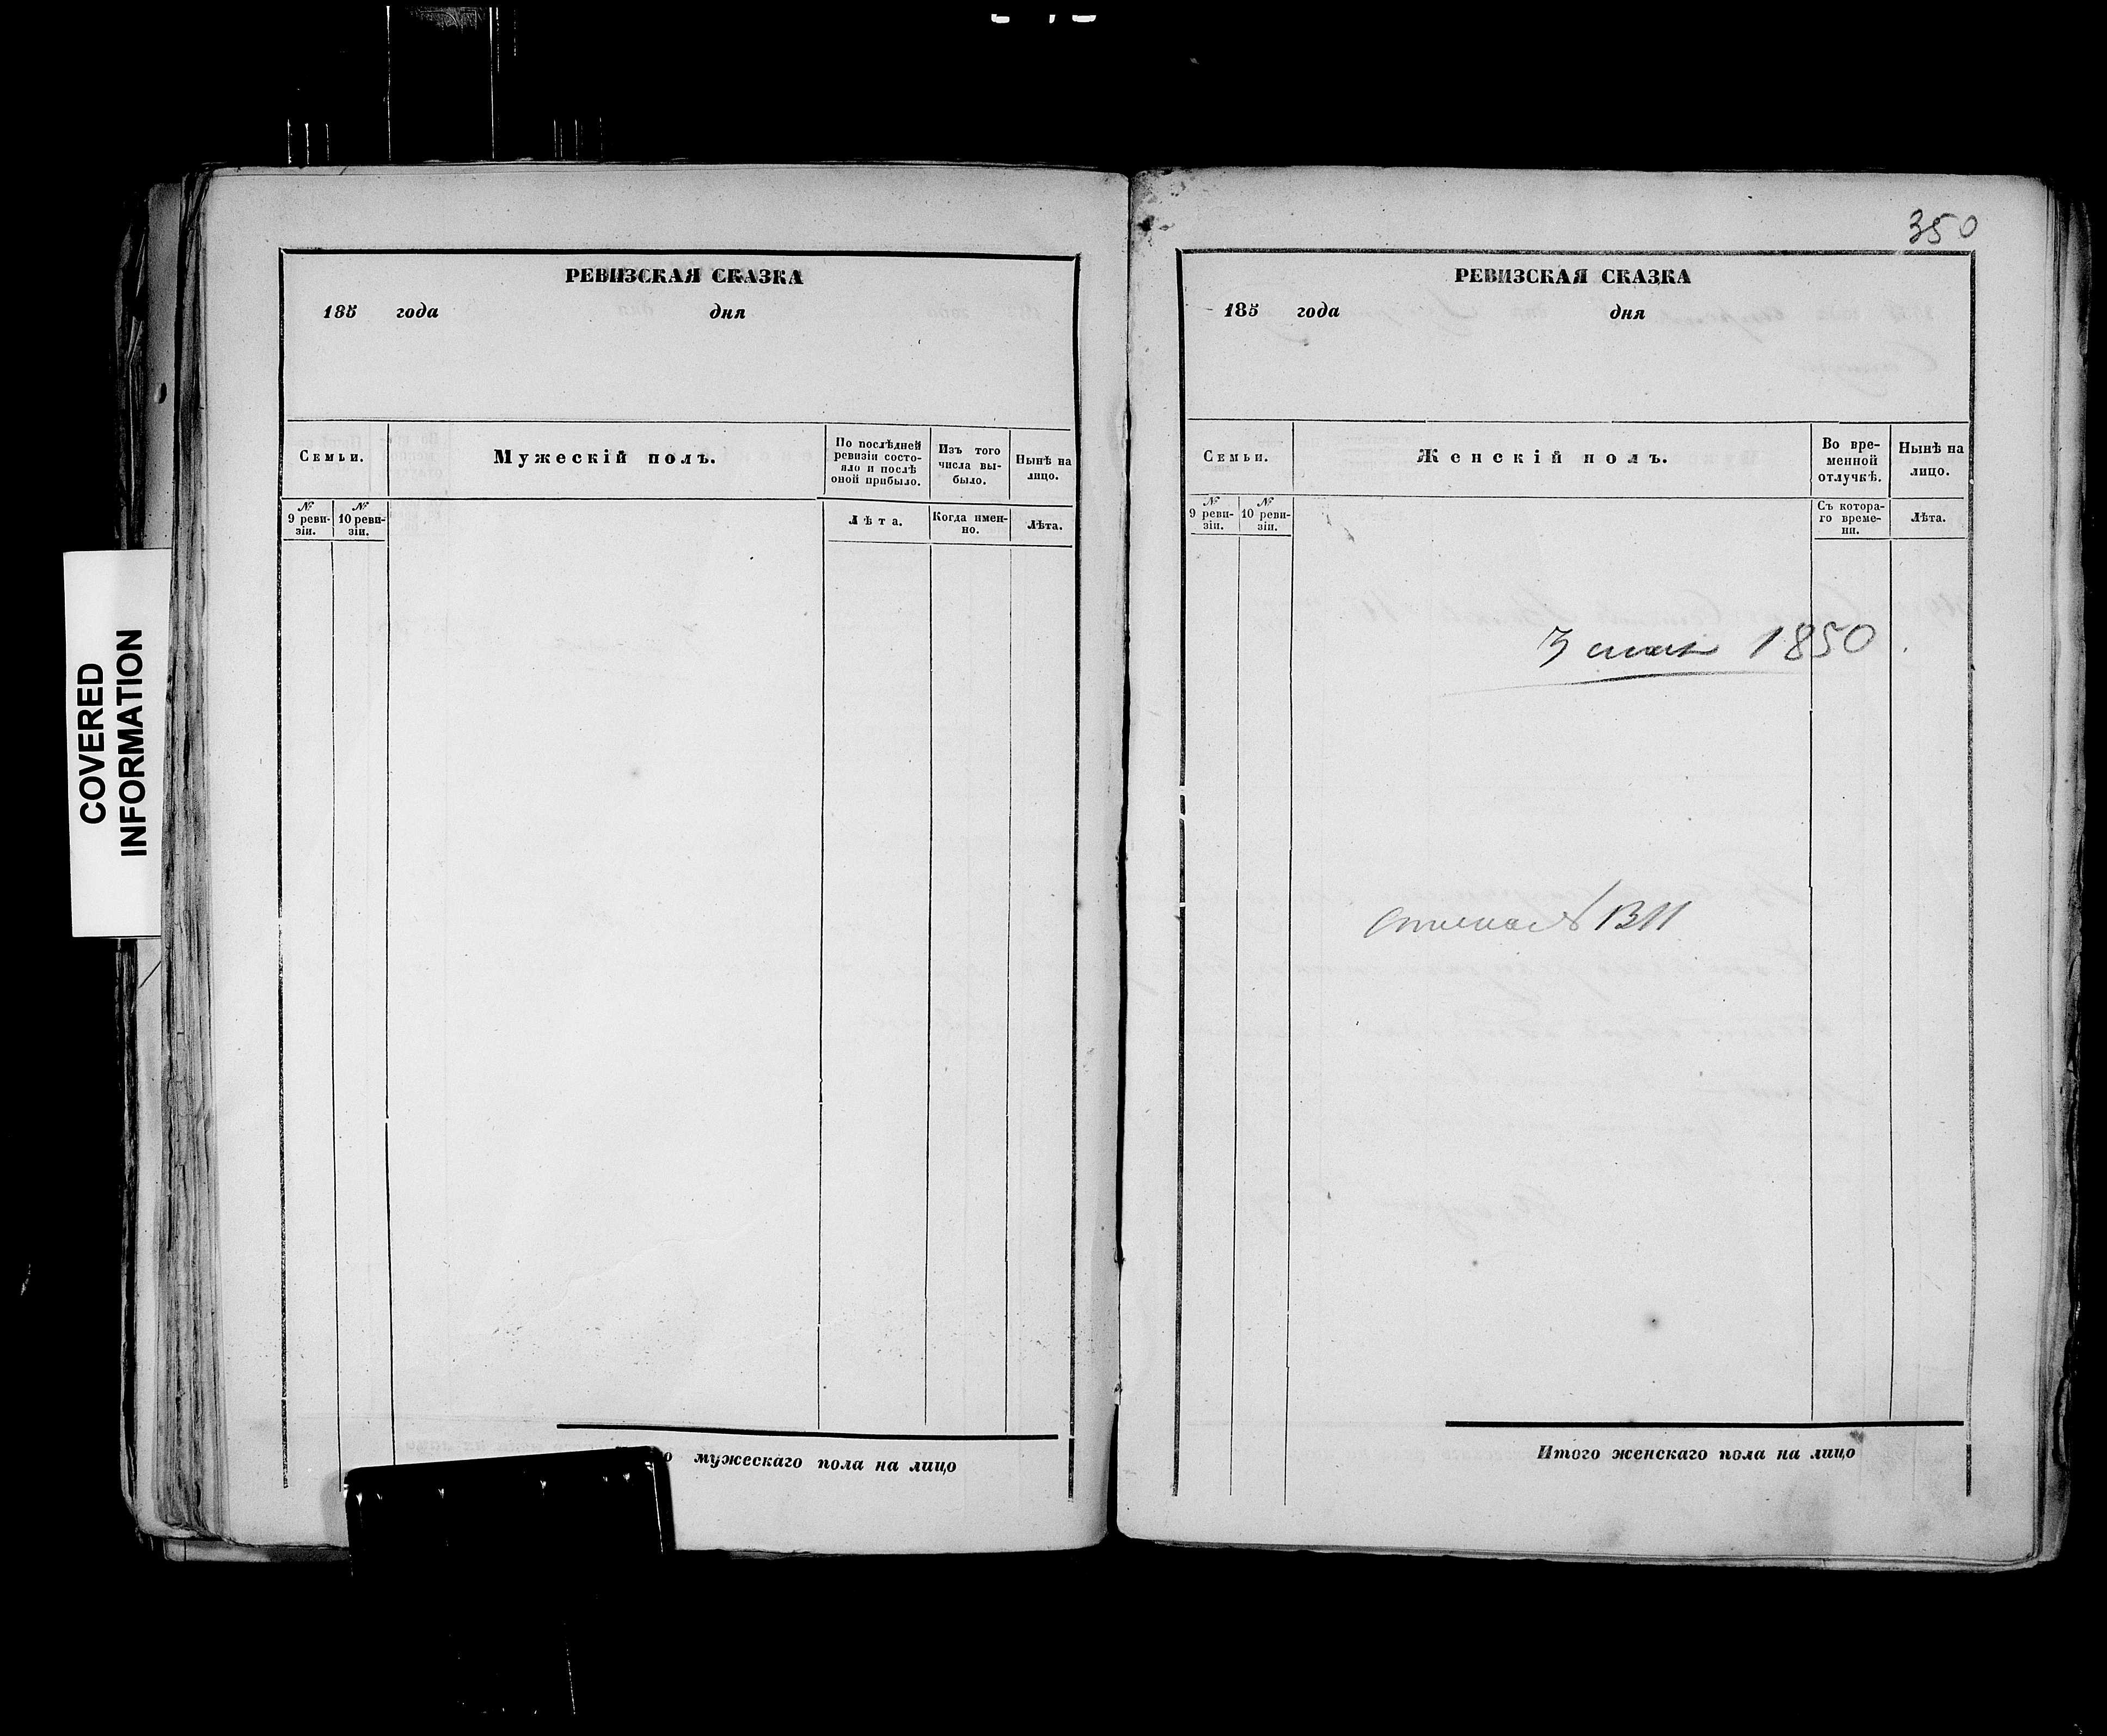 350
РЕВИЗСКАЯ СКАЗКА
185 года дня
Семьи.
Мужескій полъ.
По послѣдней ревизіи состояло и послѣ оной прибыло.
Изъ того числа выбыло.
Нынѣ на лицо.
№ 9 ревизіи.
№ 10 ревизіи.
Лѣта.
Когда именно.
Лѣта.
мужескаго пола на лицо
РЕВИЗСКАЯ СКАЗКА
185 года дня
Семьи.
Женскій полъ.
Во временной отлучкѣ.
Нынѣ на лицо.
№ 9 ревизіи.
№ 10 ревизіи.
Съ котораго времени.
Лѣта.
1850
Итого женскаго пола на лицо
COVERED
INFORMATION